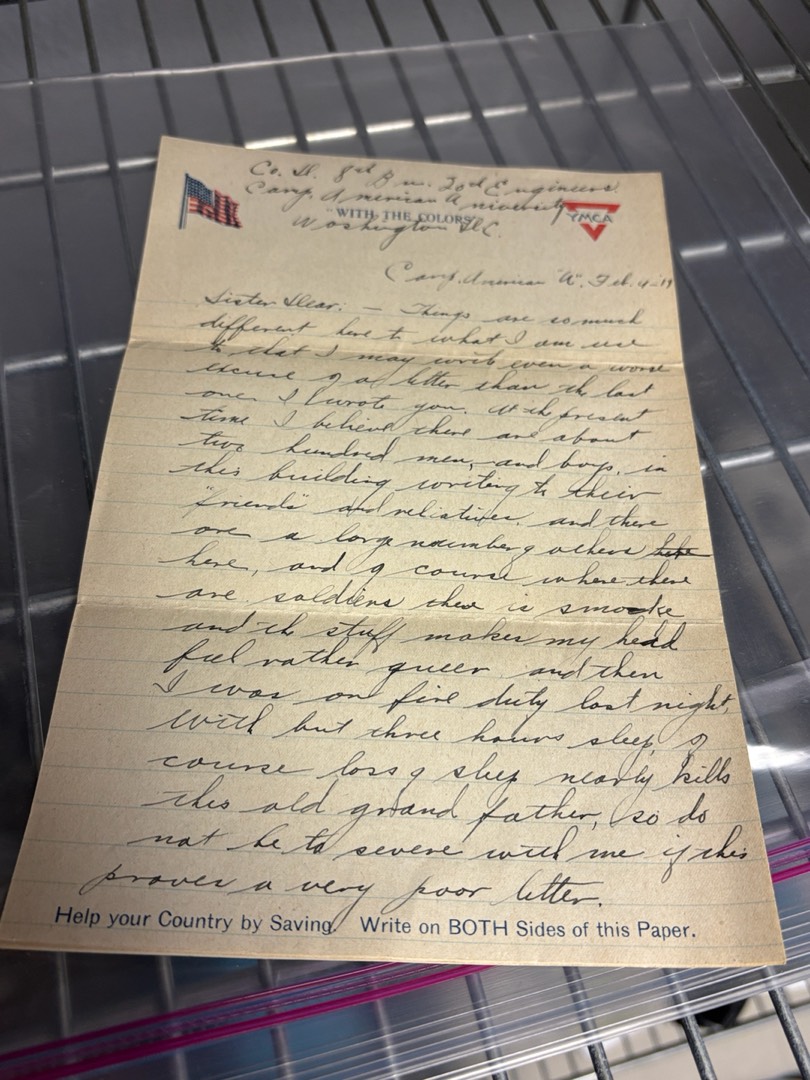 Co. D. 8th Bn. 20th Engineers.
Camp. American University
"WITH THE COLORS"
YMCA
Washington D.C.
Camp. American "U". Feb. 4-19
Sister Dear: — Things are so much
different here to what I am use
to that I may write even a worse
excuse of a letter than the last
one I wrote you. At the present
time I believe there are about
two hundred men, and boys, in
this building writing to their
"friends" and relatives. and there
are a large number of others
here, and of course where there
are soldiers there is smoke
and the stuff makes my head
feel rather queer and then
I was on fire duty last night,
with but three hours sleep, of
course loss of sleep nearly kills
this old grand father, so do
not be to severe with me if this
proves a very poor letter.
Help your Country by Saving. Write on BOTH Sides of this Paper.